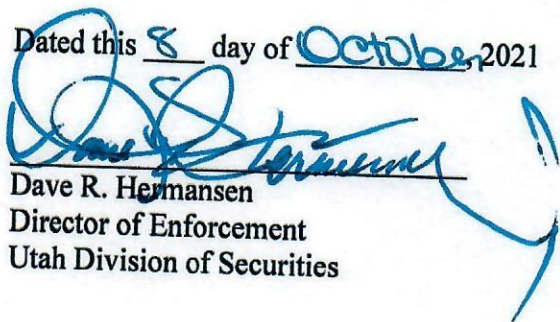 Dated this 8 day of October, 2021
Dave R. Hermansen
Dave R. Hermansen
Director of Enforcement
Utah Division of Securities